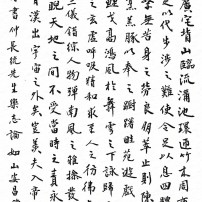 廣宅背山臨流溝池環通竹木周
足以代步涉之難使令足以息四體
無苦身之勞良朋萃止則陳
之躊躇畦苑遊戲
弋高鴻風於舞雩之下詠歸
之玄虛呼吸精和求至人之彷彿
二儀錯綜人物彈南風之雅操發
睨天地之間不受當時之
漢出宇宙之外矣豈羨夫入帝
書仲長統先生樂志論如山安昌